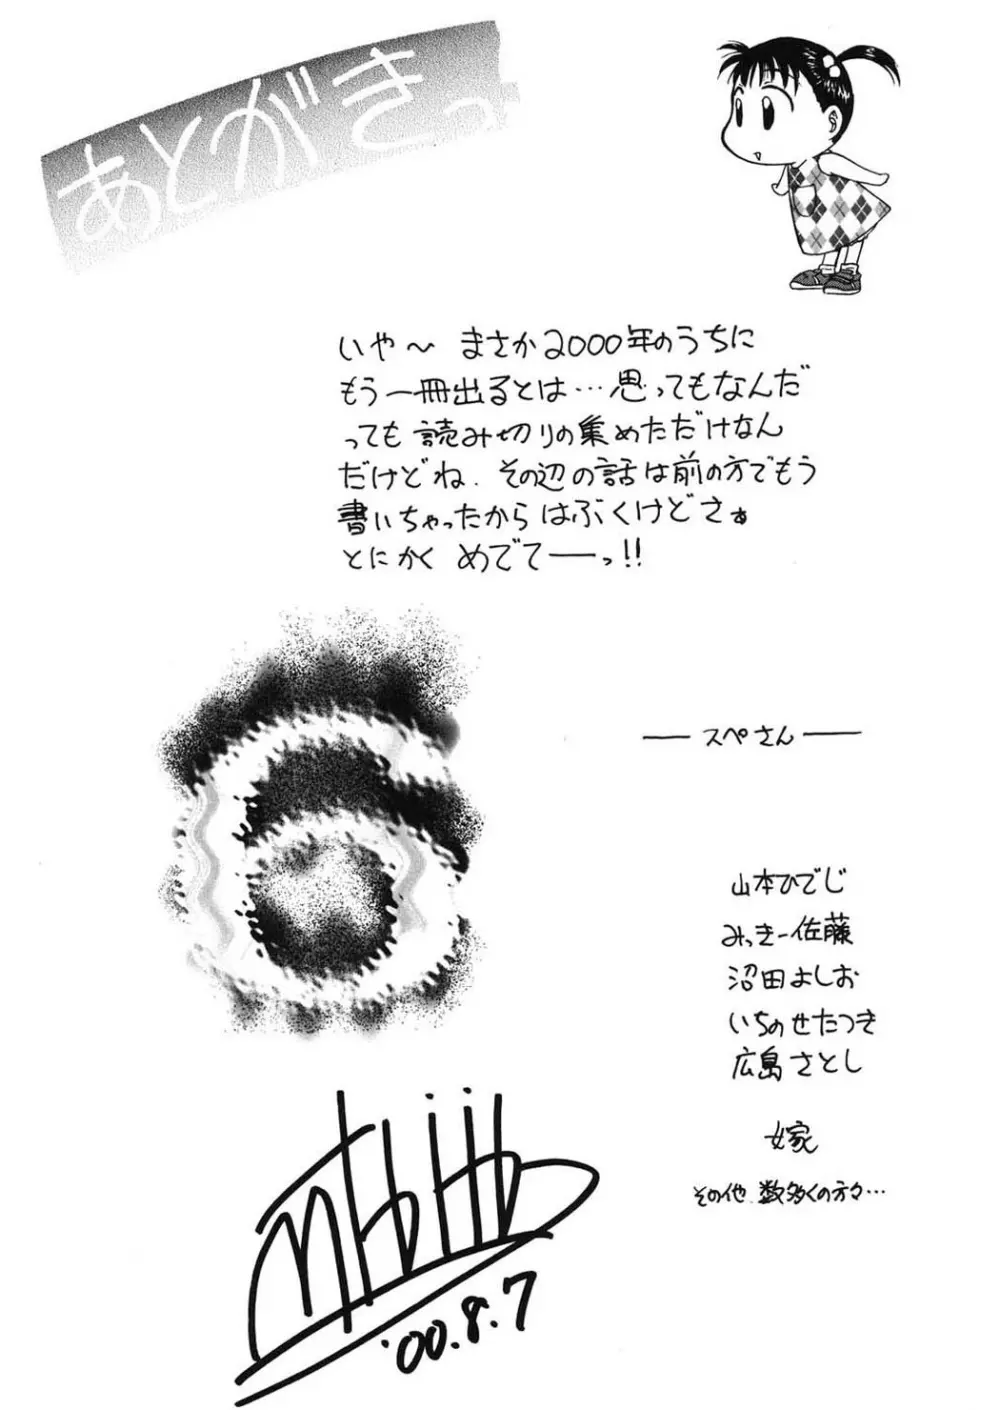 あとがきっ
いや～ まさか2000年のうちに
もう一冊出るとは…思ってもなんだ
っても 読み切りの集めただけなん
だけどね. その辺の話は前の方でもう
書いちゃったから はぶくけどさぁ
とにかく めでてーっ!!
6
― スペさん ―
山本ひでじ
みっきー佐藤
沼田よしお
いちのせたつき
広島さとし
嫁
その他 数多くの方々…
'00.8.7